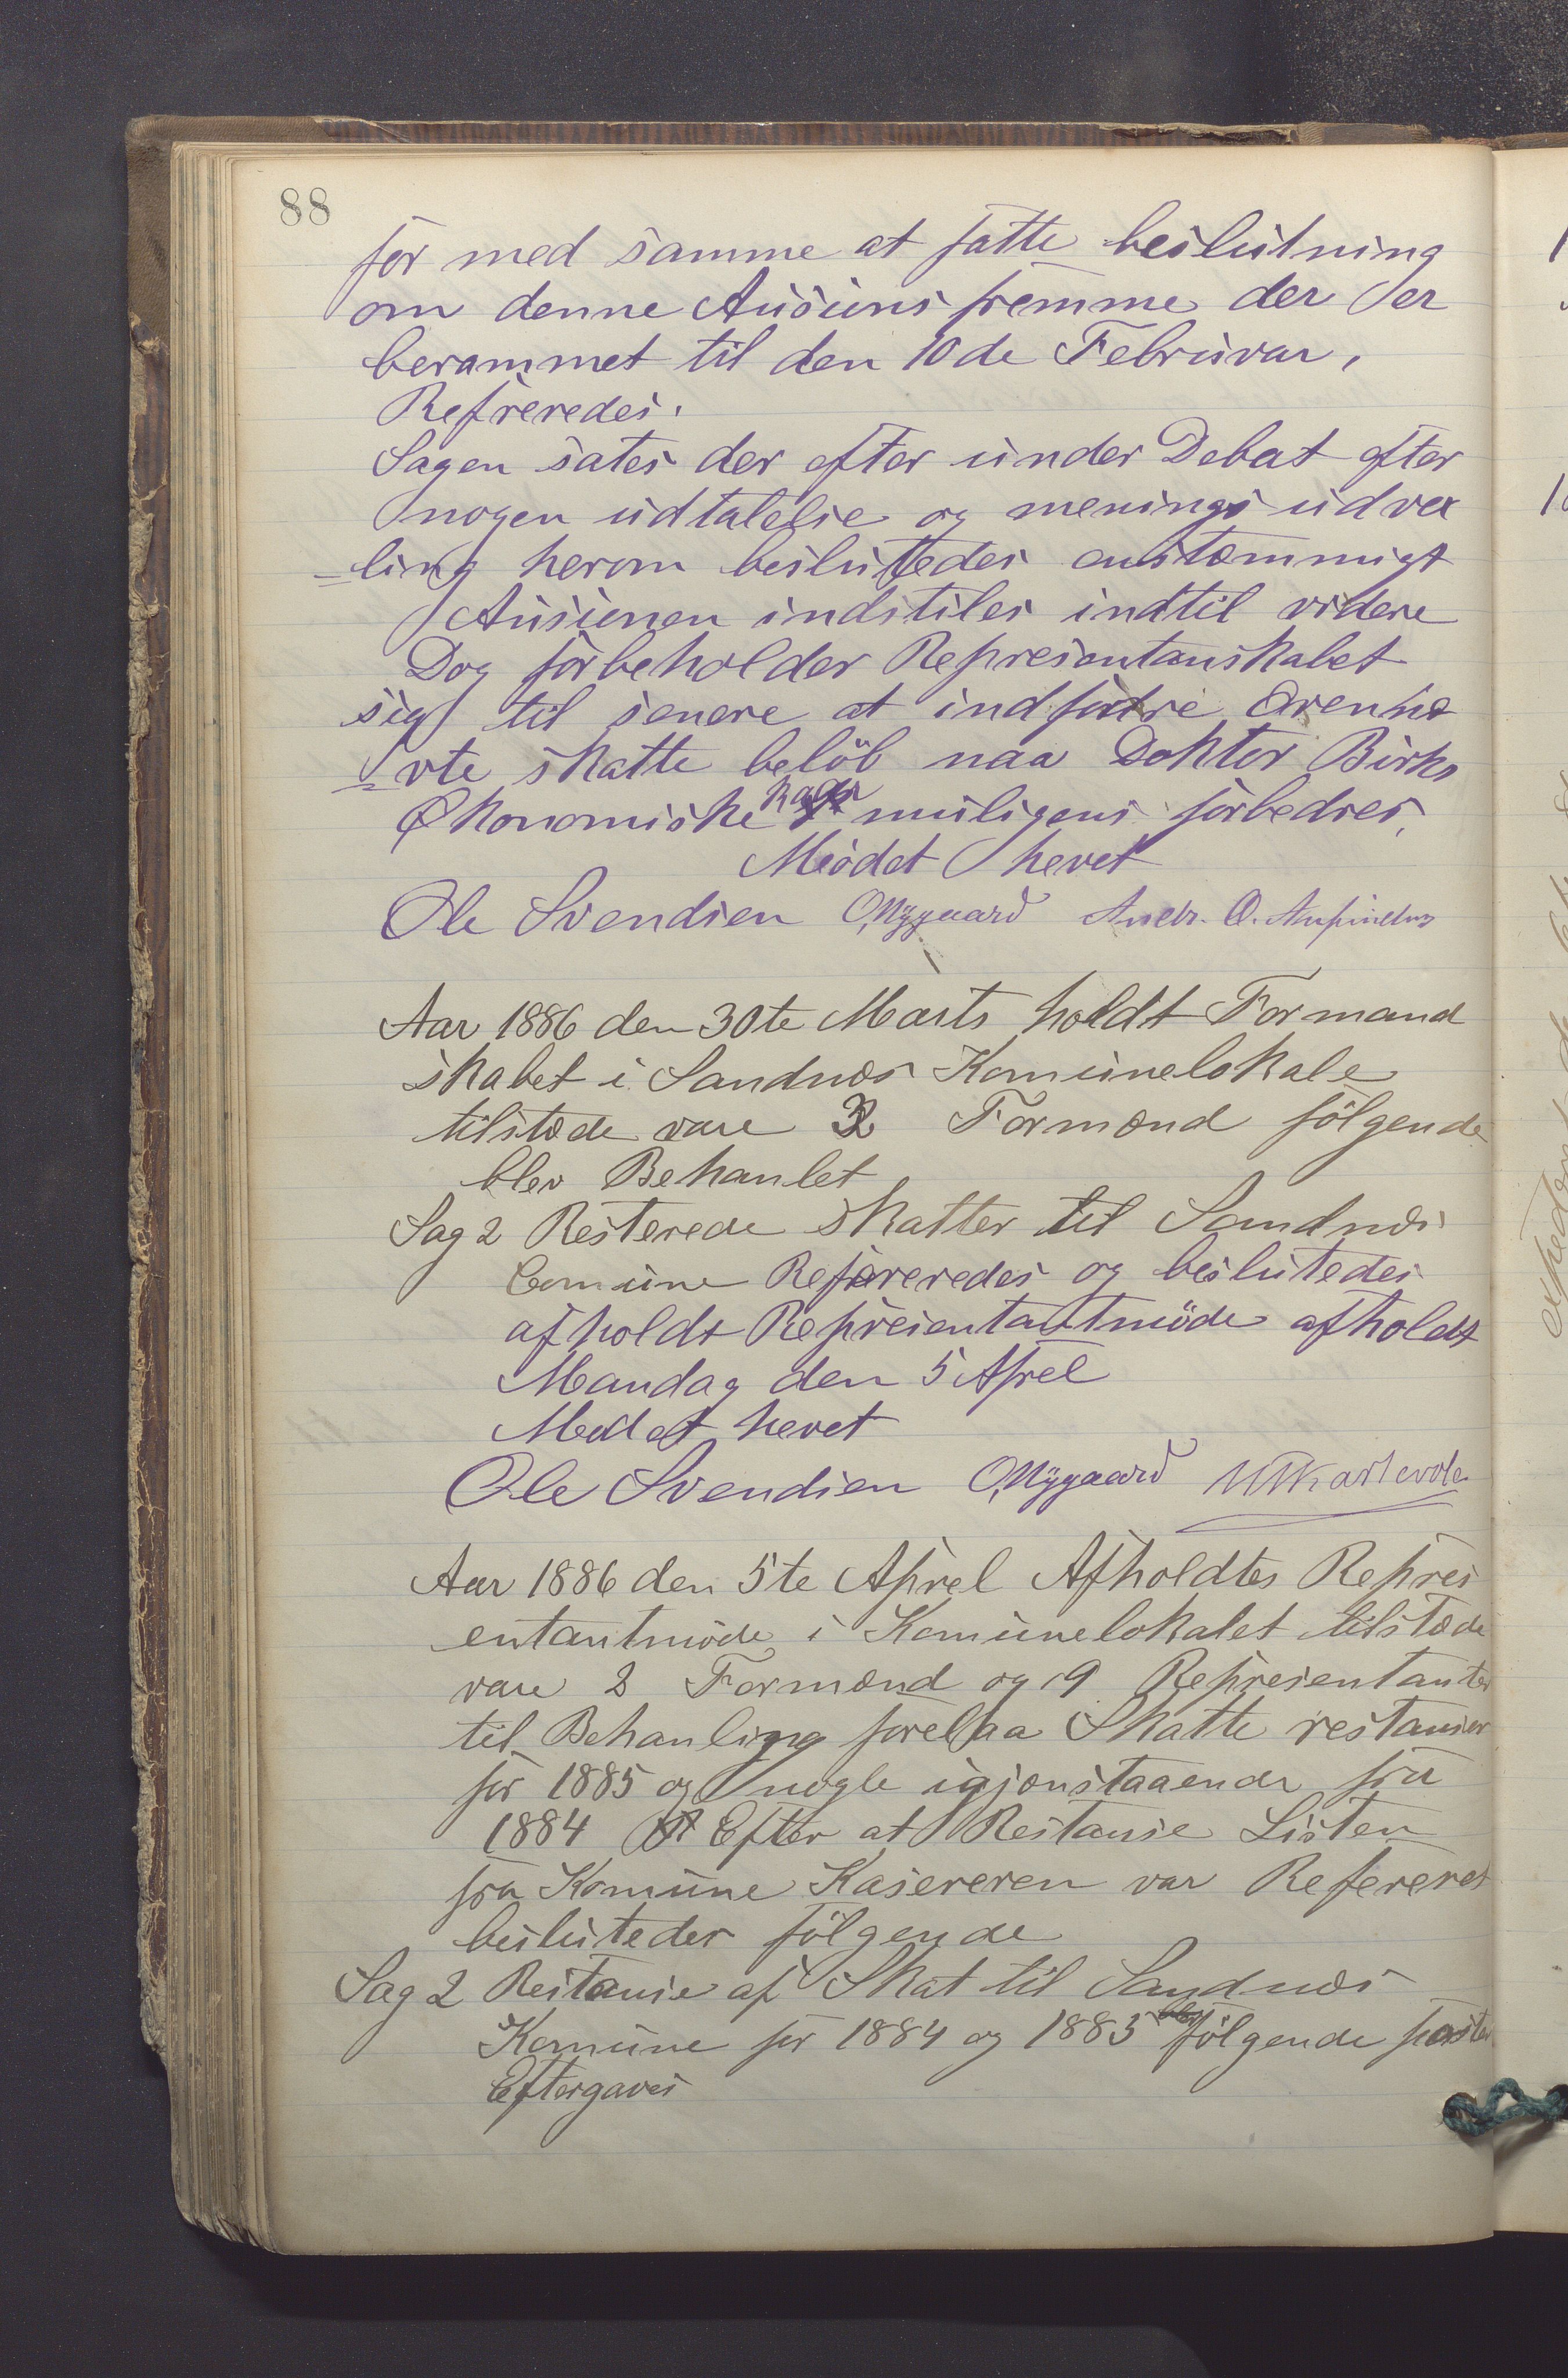 88
for med samme at fatte beslutning
om denne Ausions fremme der er
berammet til den 10de Februvar,
Refreredes.
Sagen sates der efter under Debat efter
nogen udtalelse og menings udvex
=ling herom beslutedes enstemmigt
Ausionen indstiles indtil videre
Dog forbeholder Represontanskabet
sig til senere at indfordre
vte skatte beløb naa Doktor Birks
Økonomiske kaar muligens forbedres,
Mødet hevet
Ole Svendsen O, Nygaard Andr. O.
Aar 1886 den 30te Marts holdt Formand
skabet i Sandnæs Komunelokale
tilstæde vare 3 Formænd følgende
blev Behanlet
Sag 2 Resterede skatter til Sandnæs
Comune Refereredes og beslutedes
afholdt Represientantmøde afholdt
Mandag den 5 Aprel
Mødet hevet
Ole Svendsen O, Nygaard
Aar 1886 den 5te Aprel Afholdtes Repres
entantmøde i Komunelokalet tilstæde
vare 2 Formænd og 9 Represientanter
til Behanling forelaa Skatte restanser
for 1885 og nogle igjenstaaende fra
1884 Efter at Restanse Listen
fra Komune Kasereren var Referered
beslutedes følgende
Sag 2 Restanse af Skat til Sandnæs
Komune for 1884 og 1885 følgende poster
Eftergaves